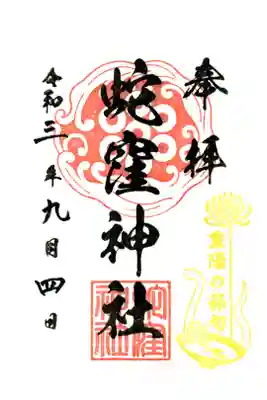 奉拝
蛇窪神社
令和三年九月四日
蛇窪神社
重陽の節句